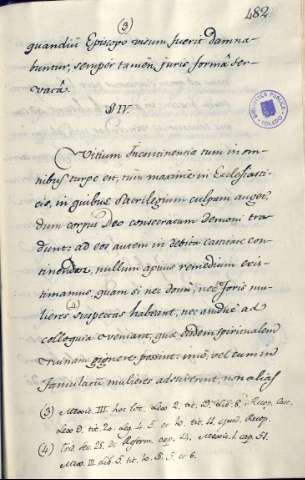 (3)
482
quandiu Episcopo visum fuerit damna-
buntur, semper tamen juris formâ ser-
vatâ.
§ IV.
Vitium Incontinentiæ cum in om-
nibus turpe est, tum maxime in Ecclesiasti-
cis, in quibus Sacrilegium culpam auget,
dum corpus Deo consecratum demoni tra-
dunt: ad eos autem in debita castitate con-
tinendos, nullum aptius remedium exis-
timamus, quam si nec domi, nec foris mu-
lieres (4) suspectas habeant, nec audire ad
colloquia veniant, quæ eisdem spiritualem
ruinam gignere possint: imò, vel cum in
famulatum mulieres adsciverint, non alias
(3) Mexic. III. hoc tit. Leg. 2. tit. D. lib. 8. Recop. Cast.
Leg. D. tit. 20. Leg. 4. 5. et 10. tit. 11. ejusd. Recop.
(4) Trid. ses. 25. de Reform. cap. 14. Mexic. I. cap. 51.
Mexic. III. lib. 5. tit. 10. §. 5. et 6.
BIBLIOTECA PUBLICA
TOLEDO